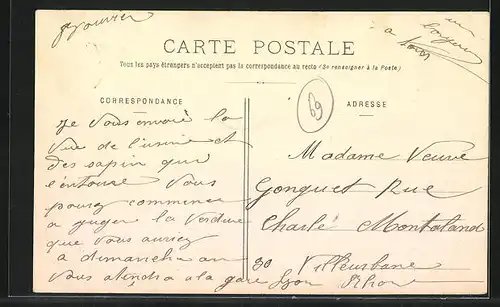 CARTE POSTALE
Tous les pays étrangers n'acceptent pas la correspondance au recto (Se renseigner à la Poste)
CORRESPONDANCE
ADRESSE
69
Je vous envoie la
vue de l'usine et
des sapin que
l'entoure vous
pourez commencer
a guger la verdure
que vous auriez
a dimanche on
vous atendra a la gare
Madame Veuve
Gonguet Rue
Charlé Montaland
30 Villeurbane
Lyon Rhone